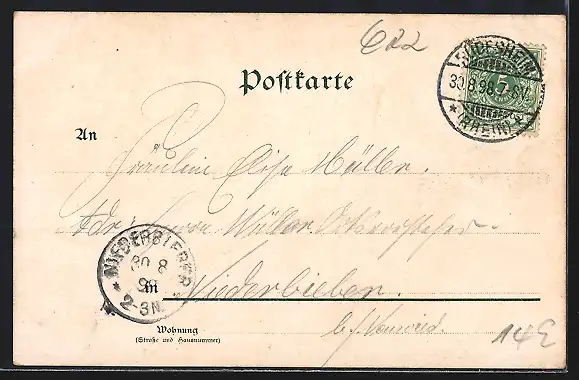 622
Postkarte
RÜDESHEIM
30.8.98.7-8V.
* (RHEIN) *
5
An
Fräulein Elise Müller.
Adr. Herrn Müller
NIEDERBIEBER
30 8
98
2-3N.
in Niederbieber.
b/ Neuwied.
Wohnung
(Straße und Hausnummer)
14E